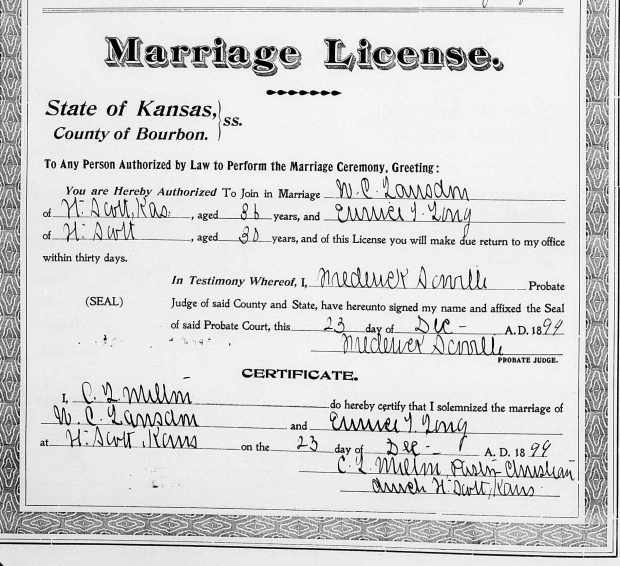 Marriage License.
State of Kansas,
County of Bourbon. ss.
To Any Person Authorized by Law to Perform the Marriage Ceremony, Greeting:
You are Hereby Authorized To Join in Marriage W. C. Lansdon
of Ft. Scott, Kas. , aged 36 years, and Eunice T. Long
of Ft. Scott , aged 30 years, and of this License you will make due return to my office
within thirty days.
In Testimony Whereof, I, Frederick Probate
(SEAL) Judge of said County and State, have hereunto signed my name and affixed the Seal
of said Probate Court, this 23 day of Dec- A. D. 1899
Frederick
PROBATE JUDGE.
CERTIFICATE.
I, C. do hereby certify that I solemnized the marriage of
W. C. Lansdon and Eunice T. Long
at Ft. Scott, Kans on the 23 day of Dec- A. D. 1899
C. Pastor Christian
Church Ft. Scott, Kans.